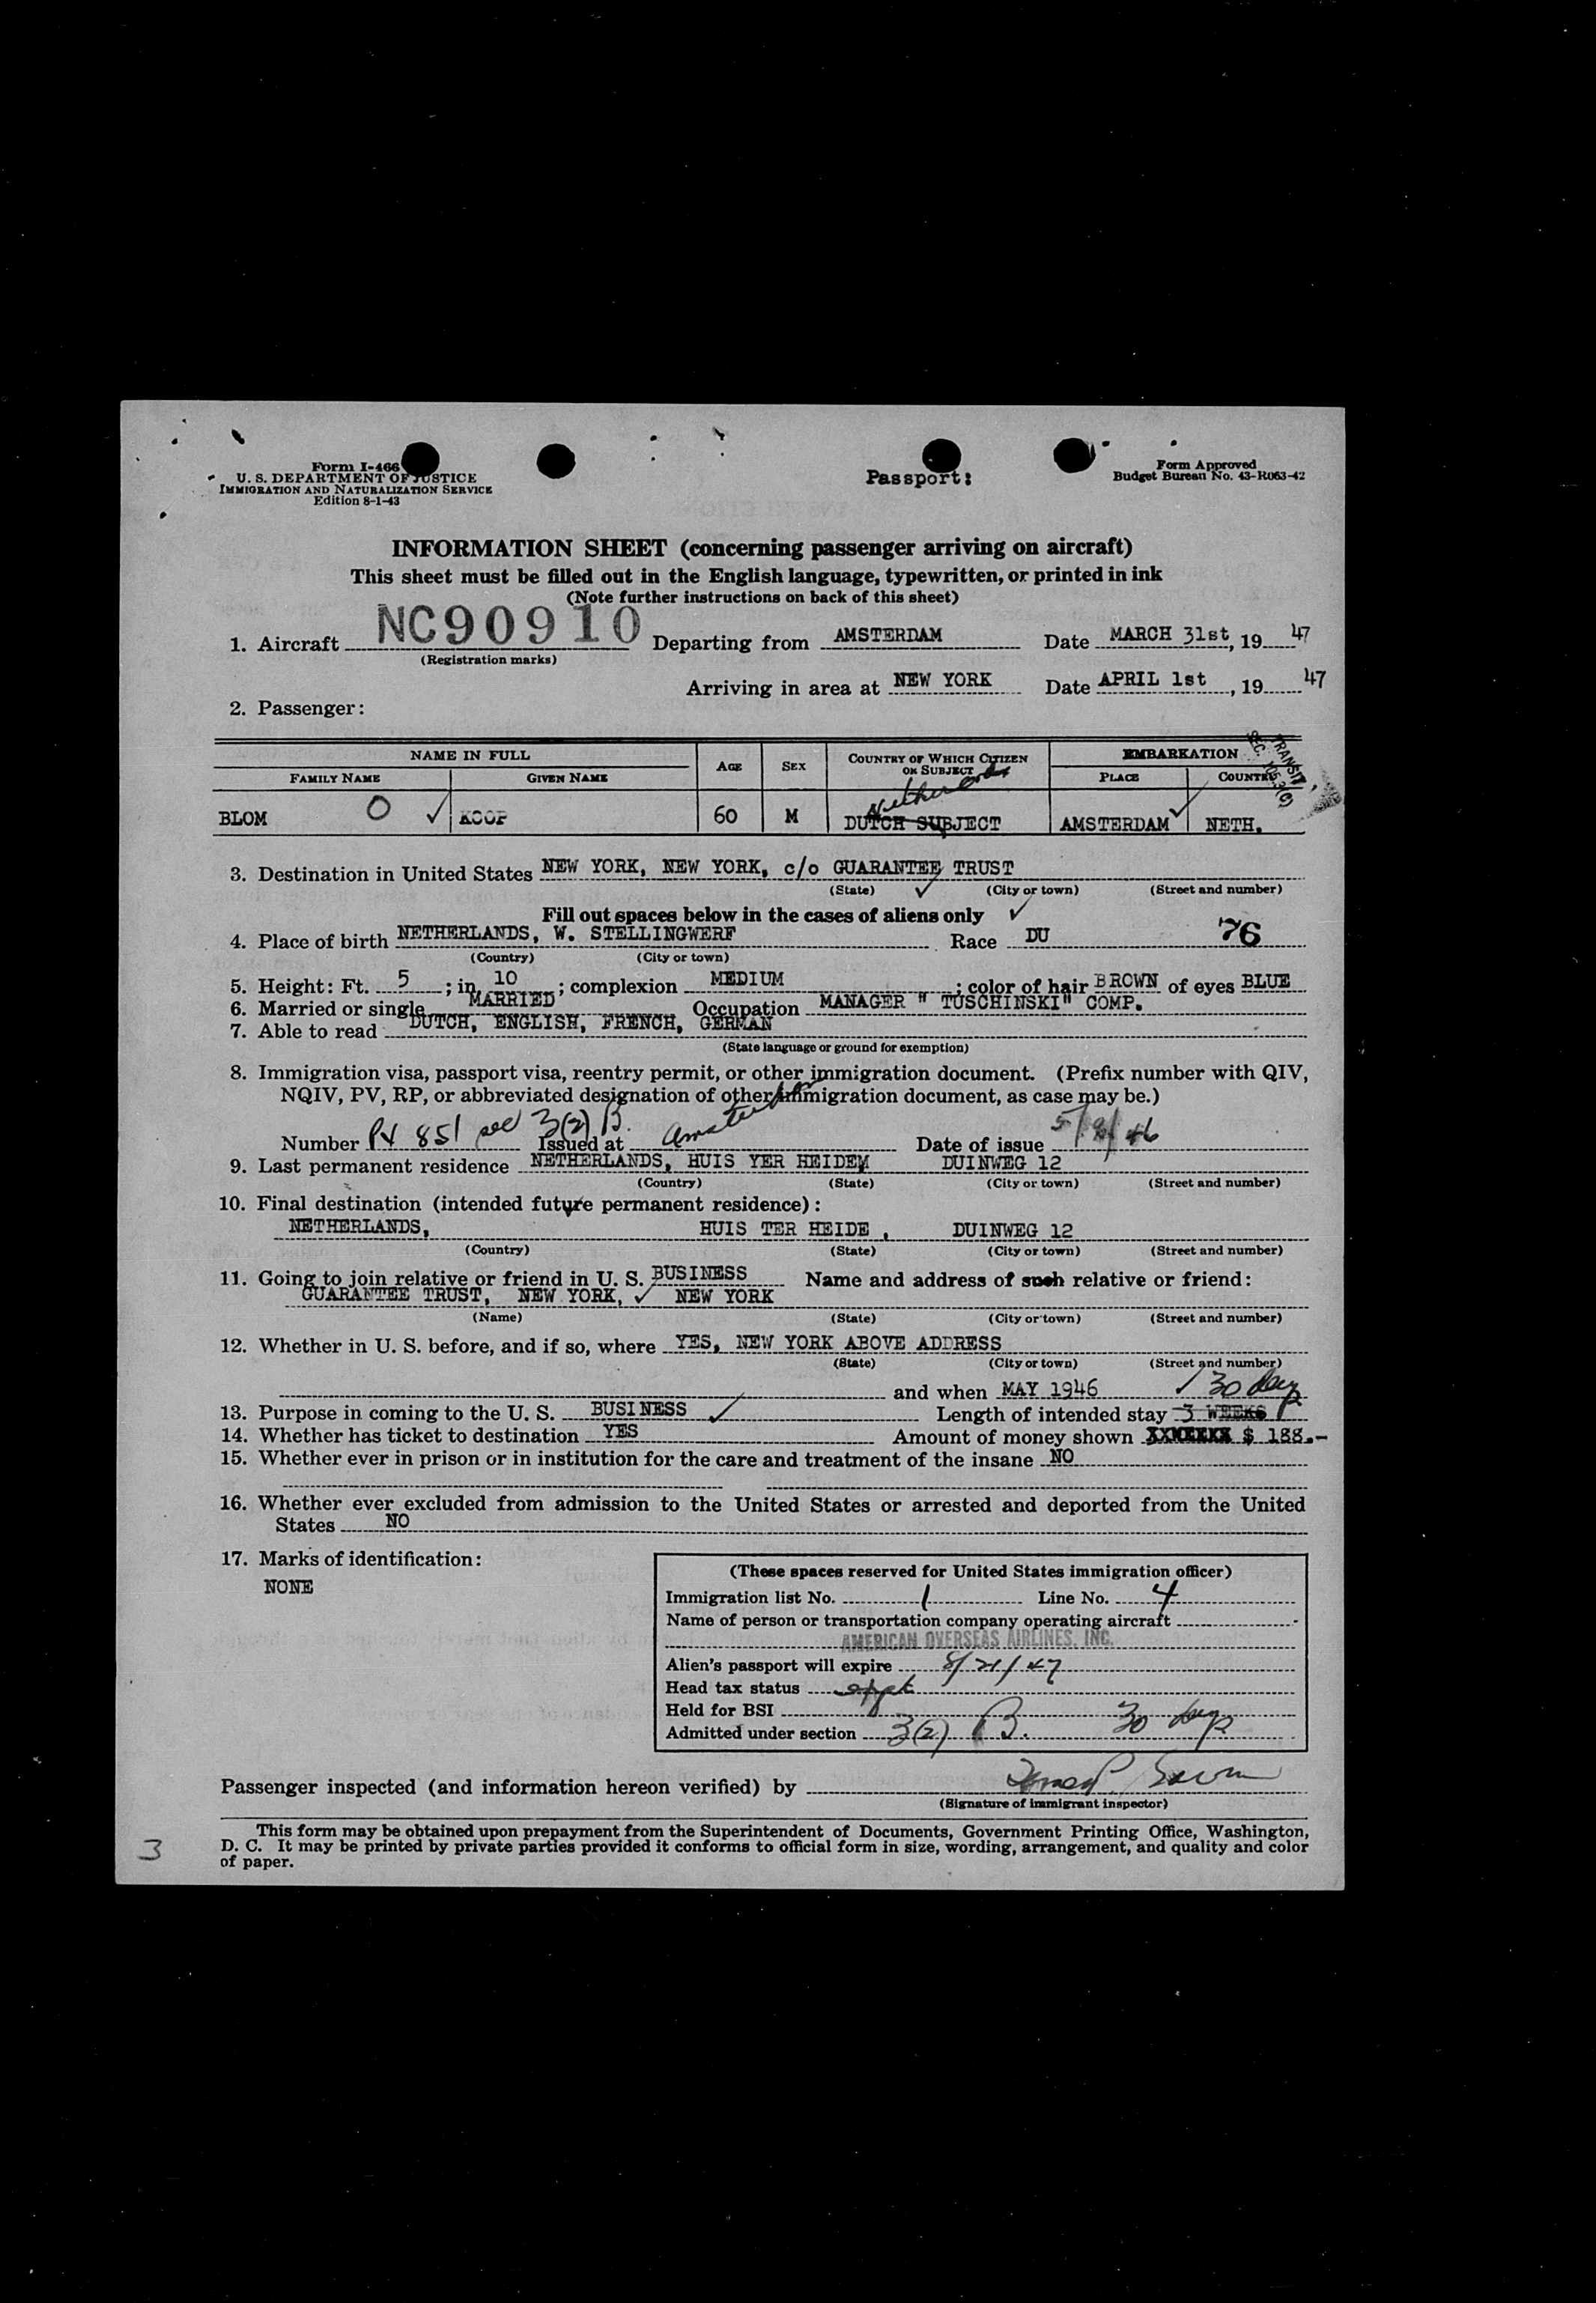 Form I-466
U. S. DEPARTMENT OF JUSTICE
IMMIGRATION AND NATURALIZATION SERVICE
Edition 8-1-43
Passport:
Form Approved
Budget Bureau No. 43-R063-42
INFORMATION SHEET (concerning passenger arriving on aircraft)
This sheet must be filled out in the English language, typewritten, or printed in ink
(Note further instructions on back of this sheet)
1. Aircraft NC90910 Departing from AMSTERDAM Date MARCH 31st, 19 47
(Registration marks)
Arriving in area at NEW YORK Date APRIL 1st, 19 47
2. Passenger:
NAME IN FULL AGE SEX COUNTRY OF WHICH CITIZEN OR SUBJECT EMBARKATION
FAMILY NAME GIVEN NAME PLACE COUNTRY
TRANSIT
SEC. 105.3(C)
Netherlands
BLOM O ✓ KOOP 60 M DUTCH SUBJECT AMSTERDAM ✓ NETH.
3. Destination in United States NEW YORK, NEW YORK, c/o GUARANTEE TRUST
(State) ✓ (City or town) (Street and number)
Fill out spaces below in the cases of aliens only ✓
4. Place of birth NETHERLANDS, W. STELLINGWERF Race DU 76
(Country) (City or town)
5. Height: Ft. 5; in. 10; complexion MEDIUM; color of hair BROWN of eyes BLUE
6. Married or single MARRIED Occupation MANAGER " TUSCHINSKI" COMP.
7. Able to read DUTCH, ENGLISH, FRENCH, GERMAN
(State language or ground for exemption)
8. Immigration visa, passport visa, reentry permit, or other immigration document. (Prefix number with QIV,
NQIV, PV, RP, or abbreviated designation of other immigration document, as case may be.)
Number PV 851 sec 3(2) B. Issued at Amsterdam Date of issue 46
9. Last permanent residence NETHERLANDS, HUIS YER HEIDEM DUINWEG 12
(Country) (State) (City or town) (Street and number)
10. Final destination (intended future permanent residence):
NETHERLANDS, HUIS TER HEIDE , DUINWEG 12
(Country) (State) (City or town) (Street and number)
11. Going to join relative or friend in U. S. BUSINESS Name and address of such relative or friend:
GUARANTEE TRUST, NEW YORK, ✓ NEW YORK
(Name) (State) (City or town) (Street and number)
12. Whether in U. S. before, and if so, where YES, NEW YORK ABOVE ADDRESS
(State) (City or town) (Street and number)
and when MAY 1946 ✓ 30 days
13. Purpose in coming to the U. S. BUSINESS ✓ Length of intended stay 3 WEEKS
14. Whether has ticket to destination YES Amount of money shown $ 188.-
15. Whether ever in prison or in institution for the care and treatment of the insane NO
16. Whether ever excluded from admission to the United States or arrested and deported from the United
States NO
17. Marks of identification:
NONE
(These spaces reserved for United States immigration officer)
Immigration list No. 1 Line No. 4
Name of person or transportation company operating aircraft
AMERICAN OVERSEAS AIRLINES, INC.
Alien's passport will expire 8/21/47
Head tax status
Held for BSI
Admitted under section 3(2) B. 30 days
Passenger inspected (and information hereon verified) by
(Signature of immigrant inspector)
This form may be obtained upon prepayment from the Superintendent of Documents, Government Printing Office, Washington,
D. C. It may be printed by private parties provided it conforms to official form in size, wording, arrangement, and quality and color
of paper.
3